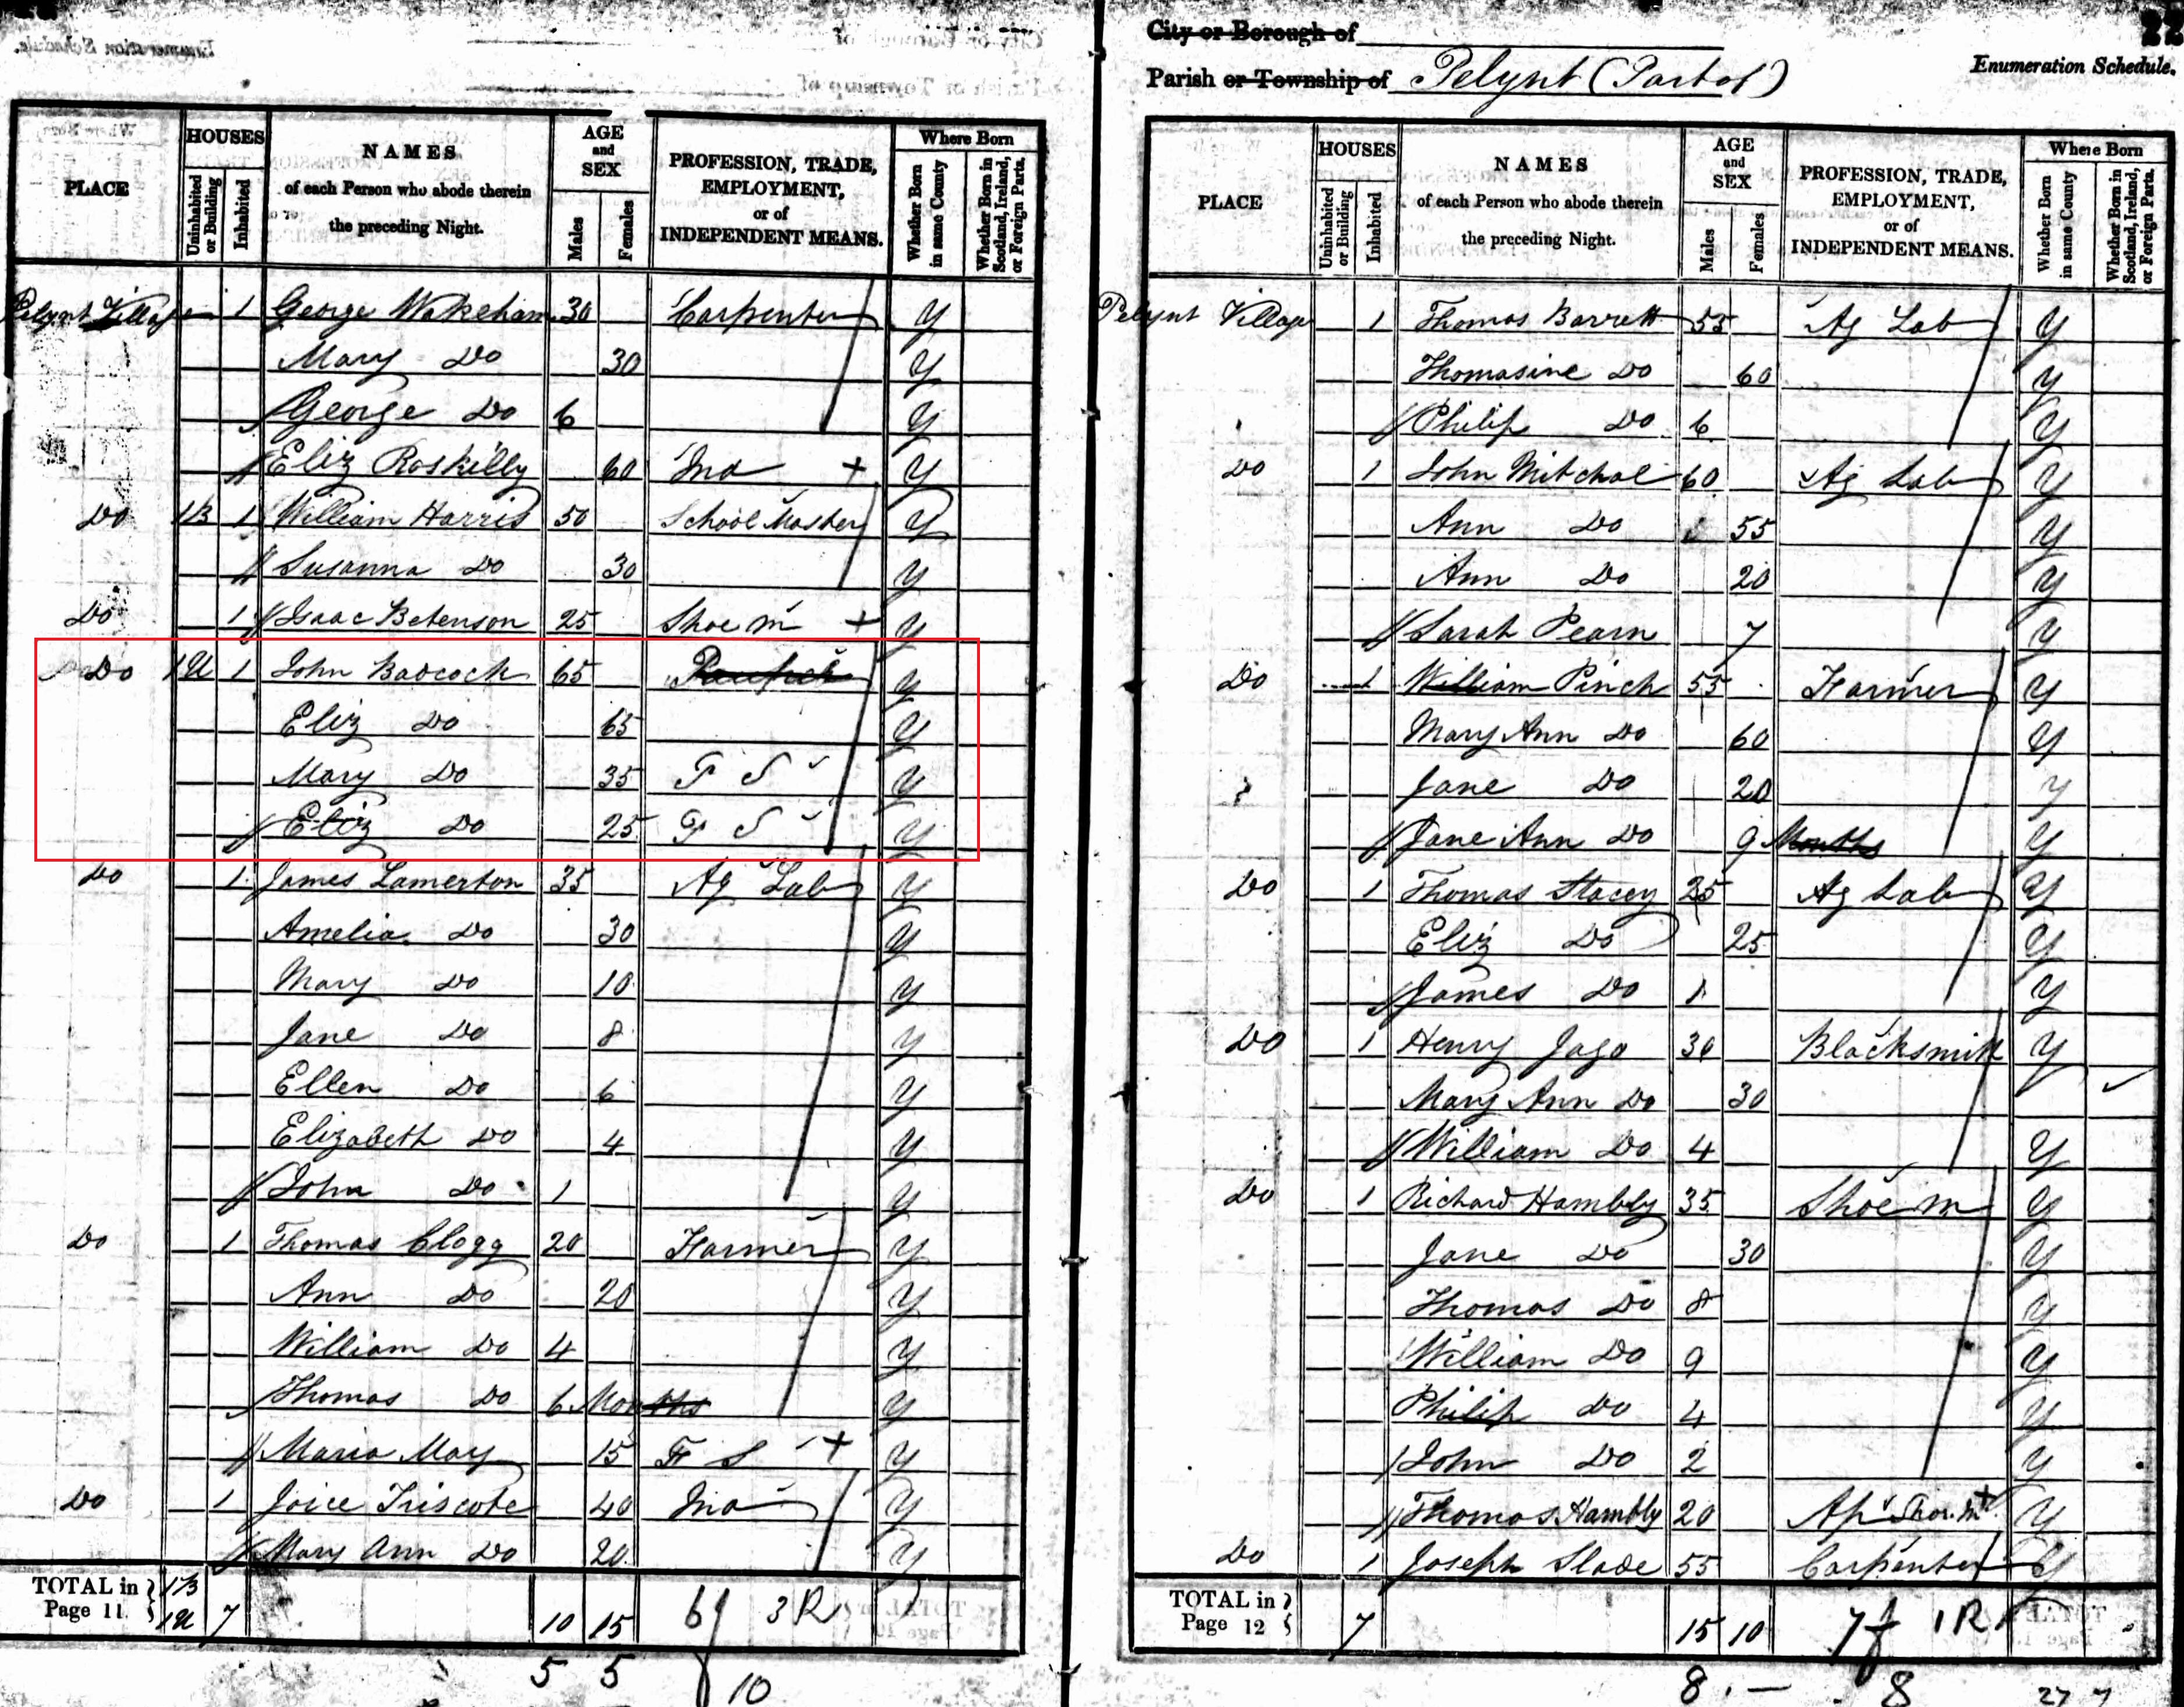 City or Borough of
Parish or Township of Pelynt (Part of)
22
Enumeration Schedule.
PLACE
HOUSES
Uninhabited or Building
Inhabited
NAMES
of each Person who abode therein
the preceding Night.
AGE
and
SEX
Males
Females
PROFESSION, TRADE,
EMPLOYMENT,
or of
INDEPENDENT MEANS.
Where Born
Whether Born in same County
Whether Born in Scotland, Ireland, or Foreign Parts.
Pelynt Village 1 George Wakeham 30 Carpenter Y
Mary Do 30 Y
George Do 6 Y
Eliz Roskilly 60 Ind + Y
Do 1B 1 William Harris 50 School Master Y
Susanna Do 30 Y
Do 1 Isaac Betenson 25 Shoe m + Y
Do 1U 1 John Badcock 65 Pauper Y
Eliz Do 65 Y
Mary Do 35 F S Y
Eliz Do 25 F S Y
Do 1 James Lamerton 35 Ag Lab Y
Amelia Do 30 Y
Mary Do 10 Y
Jane Do 8 Y
Ellen Do 6 Y
Elizabeth Do 4 Y
John Do 1 Y
Do 1 Thomas Clogg 20 Farmer Y
Ann Do 20 Y
William Do 4 Y
Thomas Do 6 Months Y
Maria May 15 F S + Y
Do 1 Joice Triscote 40 Ind Y
Mary Ann Do 20 Y
TOTAL in Page 11 1B 1U 7 10 15 6f 3R
5 5 10
PLACE
HOUSES
Uninhabited or Building
Inhabited
NAMES
of each Person who abode therein
the preceding Night.
AGE
and
SEX
Males
Females
PROFESSION, TRADE,
EMPLOYMENT,
or of
INDEPENDENT MEANS.
Where Born
Whether Born in same County
Whether Born in Scotland, Ireland, or Foreign Parts.
Pelynt Village 1 Thomas Barrett 55 Ag Lab Y
Thomasine Do 60 Y
Philip Do 6 Y
Do 1 John Mitchal 60 Ag Lab Y
Ann Do 55 Y
Ann Do 20 Y
Sarah Pearn 7 Y
Do 1 William Pinch 55 Farmer Y
Mary Ann Do 60 Y
Jane Do 20 Y
Jane Ann Do 9 Months Y
Do 1 Thomas Stacey 25 Ag Lab Y
Eliz Do 25 Y
James Do 1 Y
Do 1 Henry Jago 30 Blacksmith Y
Mary Ann Do 30
William Do 4 Y
Do 1 Richard Hambly 35 Shoe m Y
Jane Do 30 Y
Thomas Do 8 Y
William Do 9 Y
Philip Do 4 Y
John Do 2 Y
Thomas Hambly 20 Ap Shoe. m + Y
Do 1 Joseph Slade 55 Carpenter Y
TOTAL in Page 12 7 15 10 7f 1R
8 . — . 8 27 7